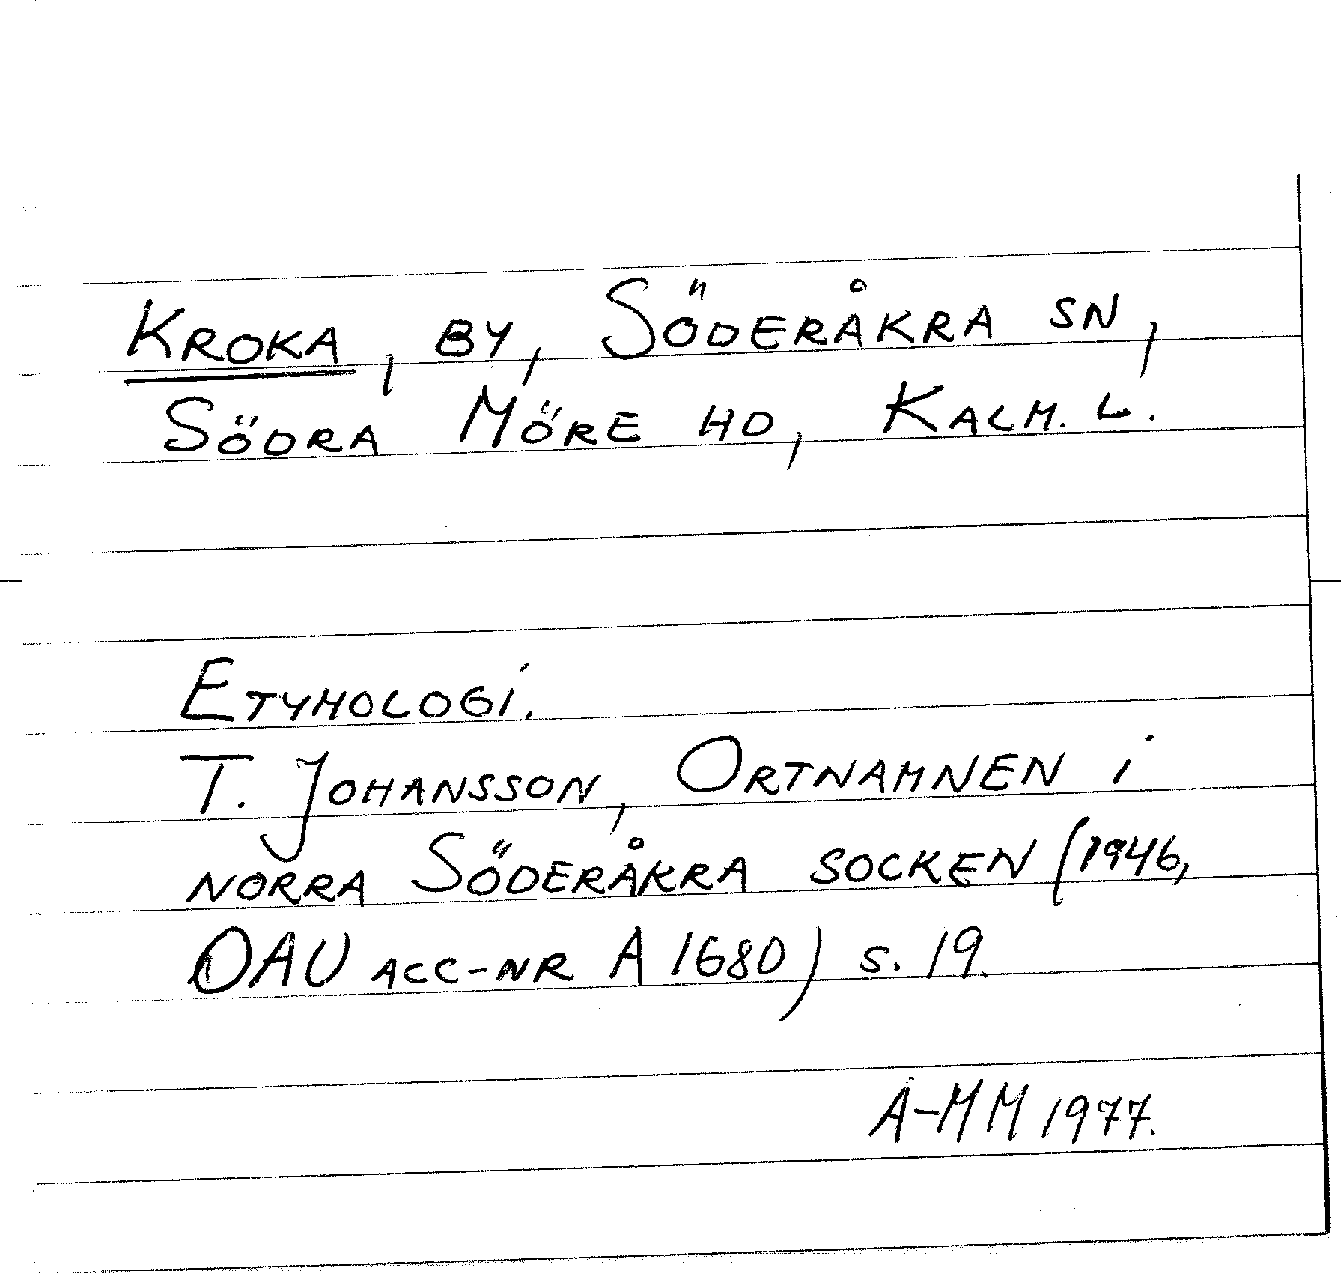 KROKA, BY, SÖDERÅKRA SN,
SÖDRA MÖRE HD, KALM. L.
ETYMOLOGI.
T. JOHANSSON, ORTNAMNEN i
NORRA SÖDERÅKRA SOCKEN (1946,
OAU ACC-NR A 1680) S. 19.
A-MM 1977.